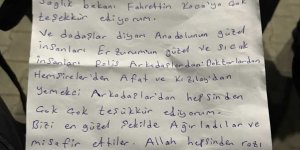 Sağlık bakanı Fahrettin Koca'ya Çok
teşekkür ediyorum.
Ve dadaşlar diyarı Anadolunun güzel
insanları Erzurumun güzel ve sıcak
insanları Polis Arkadaşlardan Doktorlardan
Hemşireler'den Afat ve Kızılay'dan
Yemekci Arkadaşlar'dan hepsinden
Çok Çok teşükkür ediyorum.
Bizi en güzel şekilde Ağırladılar ve
misafir ettiler. Allah hepsinden razı